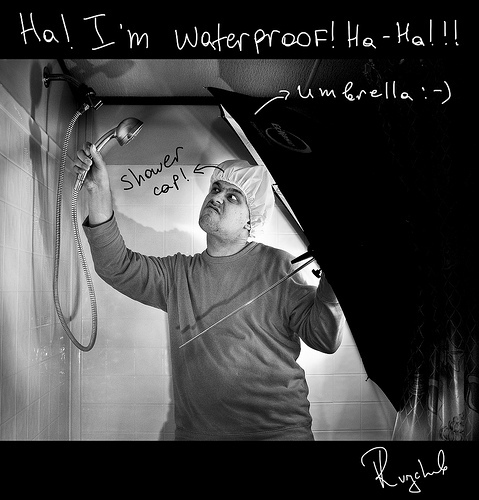 Ha! I'm waterproof! Ha-Ha!!!
umbrella :-)
shower
cap!